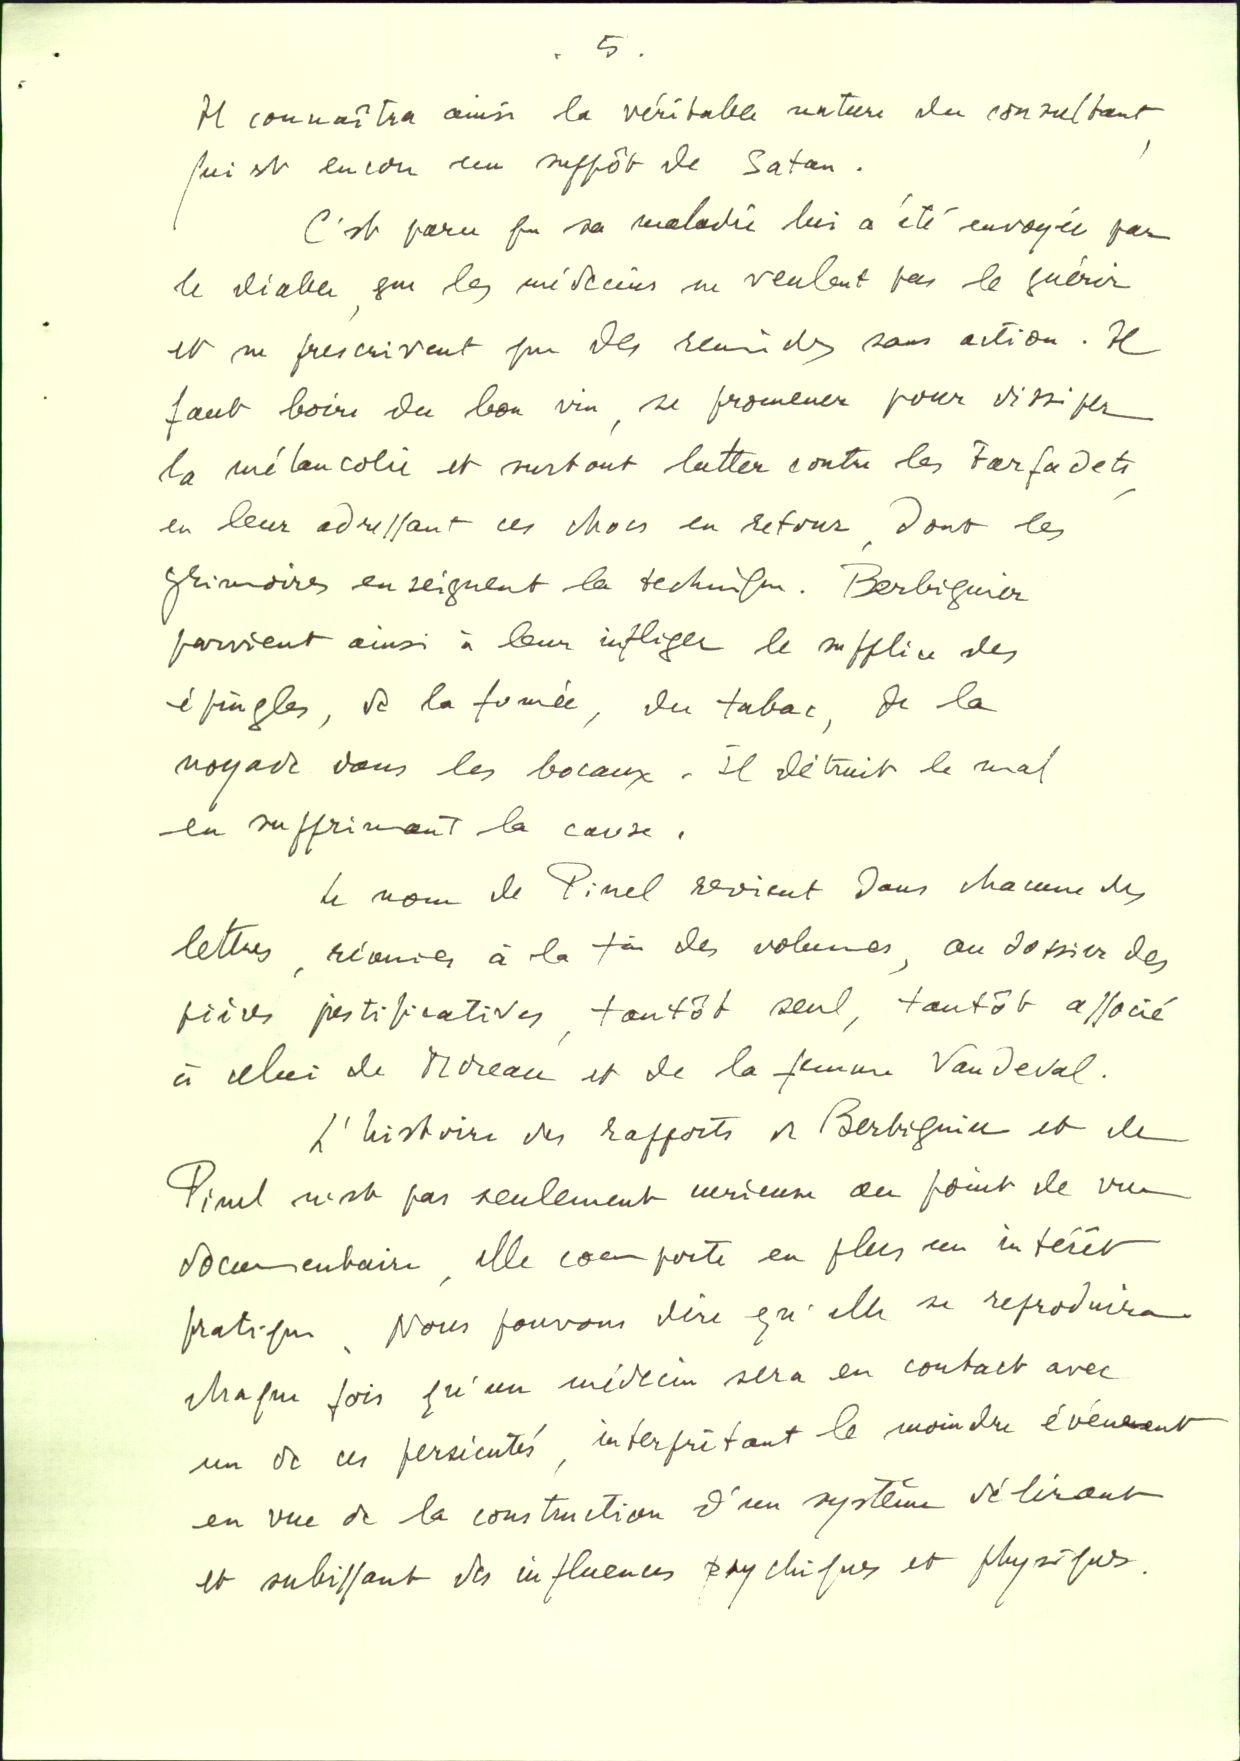 . 5 .
Il connaîtra ainsi la véritable nature du consultant,
qui est encore un suppôt de Satan.
C'est parce que sa maladie lui a été envoyée par
le diable, que les médecins ne veulent pas le guérir
et ne prescrivent que des remèdes sans action. Il
faut boire du bon vin, se promener pour dissiper
la mélancolie et surtout lutter contre les Farfadets,
en leur adressant ces chocs en retour, dont les
grimoires enseignent la technique. Berbiguier
parvient ainsi à leur infliger le supplice des
épingles, de la fumée, du tabac, de la
noyade dans les bocaux. Il détruit le mal
en supprimant la cause.
Le nom de Pinel revient dans chacune des
lettres, réunies à la fin des volumes, au dossier des
pièces justificatives, tantôt seul, tantôt associé
à celui de Moreau et de la femme Vandeval.
L'histoire des rapports de Berbiguier et de
Pinel n'est pas seulement curieuse au point de vue
documentaire, elle comporte en plus un intérêt
pratique. Nous pouvons dire qu'elle se reproduira
chaque fois qu'un médecin sera en contact avec
un de ces persécutés, interprétant le moindre événement
en vue de la construction d'un système délirant
et subissant des influences psychiques et physiques.